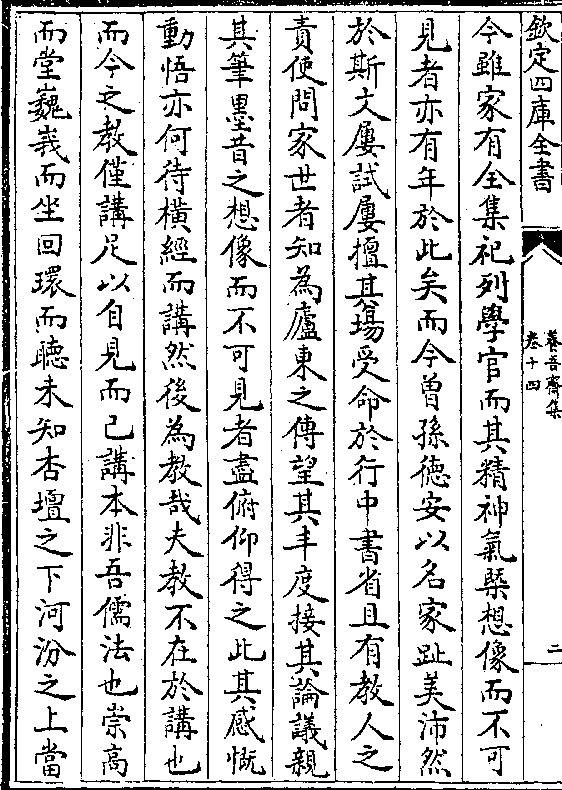 欽定四庫全書
養吾齋集
卷十四
二
今雖家有全集祀列學官而其精神氣槩想像而不可
見者亦有年於此矣而今曾孫德安以名家趾美沛然
於斯文屢試屢擅其場受命於行中書省且有教人之
責使問家世者知為廬東之傳望其丰度接其論議親
其筆墨昔之想像而不可見者盡俯仰得之此其感慨
動悟亦何待橫經而講然後為教哉夫教不在於講也
而今之教僅講足以自見而已講本非吾儒法也崇高
而堂巍峩而坐回環而聽未知杏壇之下河汾之上當